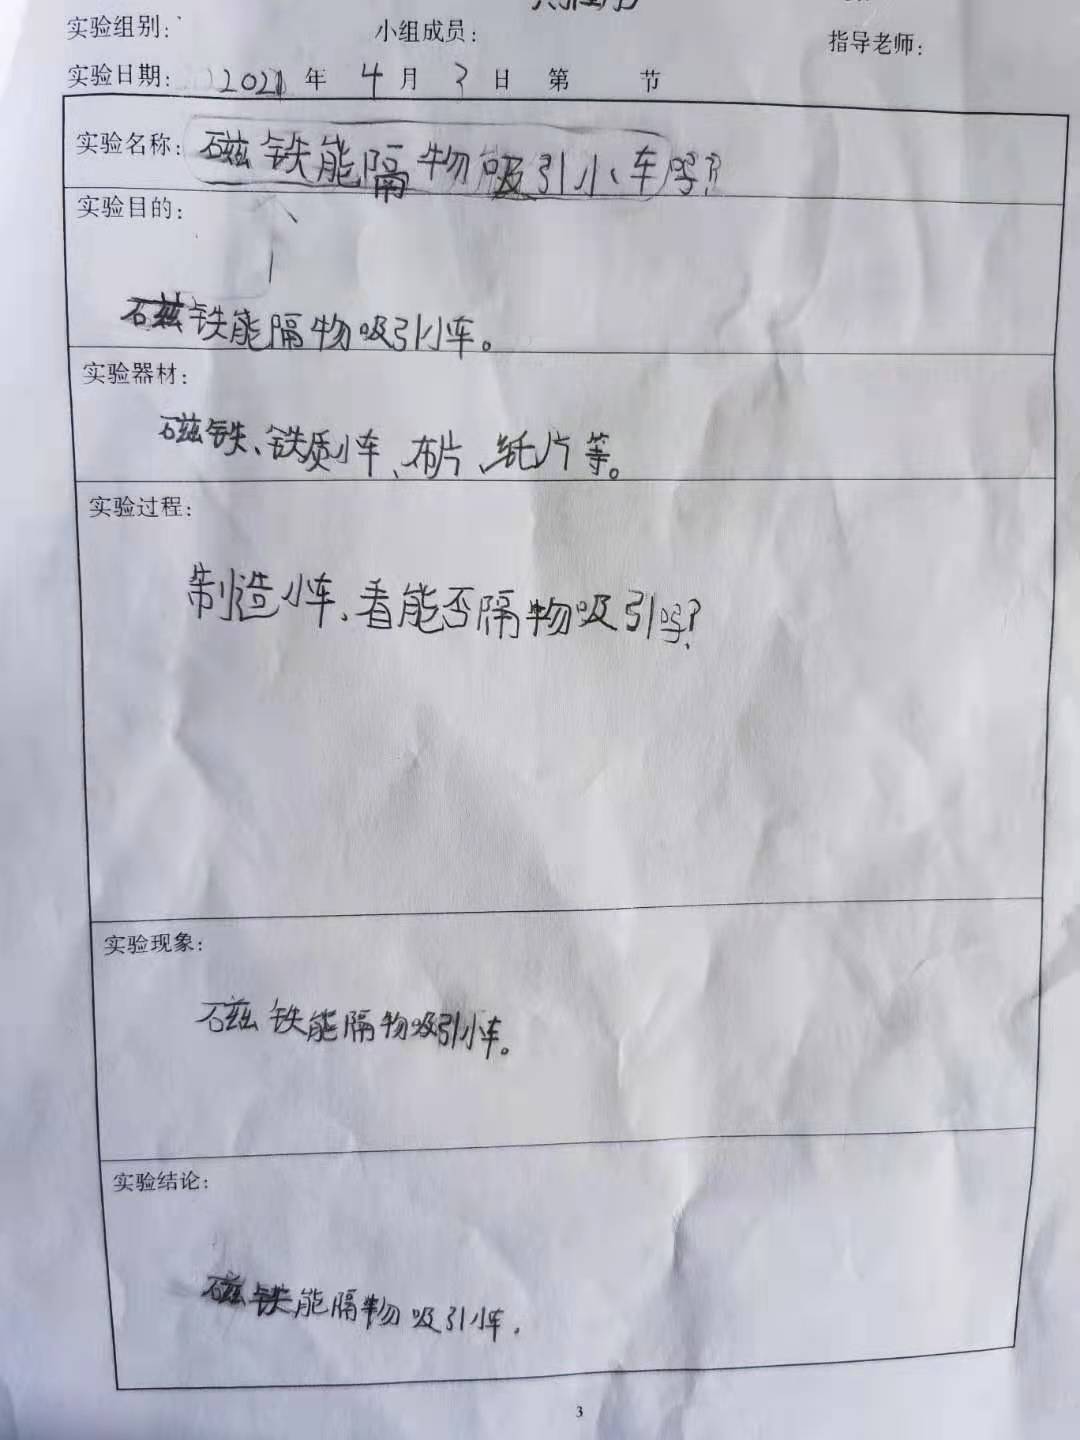 实验组别：
小组成员：
指导老师：
实验日期： 2021 年 4 月 3 日 第 节
实验名称：磁铁能隔物吸引小车吗？
实验目的：
磁铁能隔物吸引小车。
实验器材：
磁铁、铁质小车、布片、纸片等。
实验过程：
制造小车、看能否隔物吸引吗？
实验现象：
磁铁能隔物吸引小车。
实验结论：
磁铁能隔物吸引小车.
3